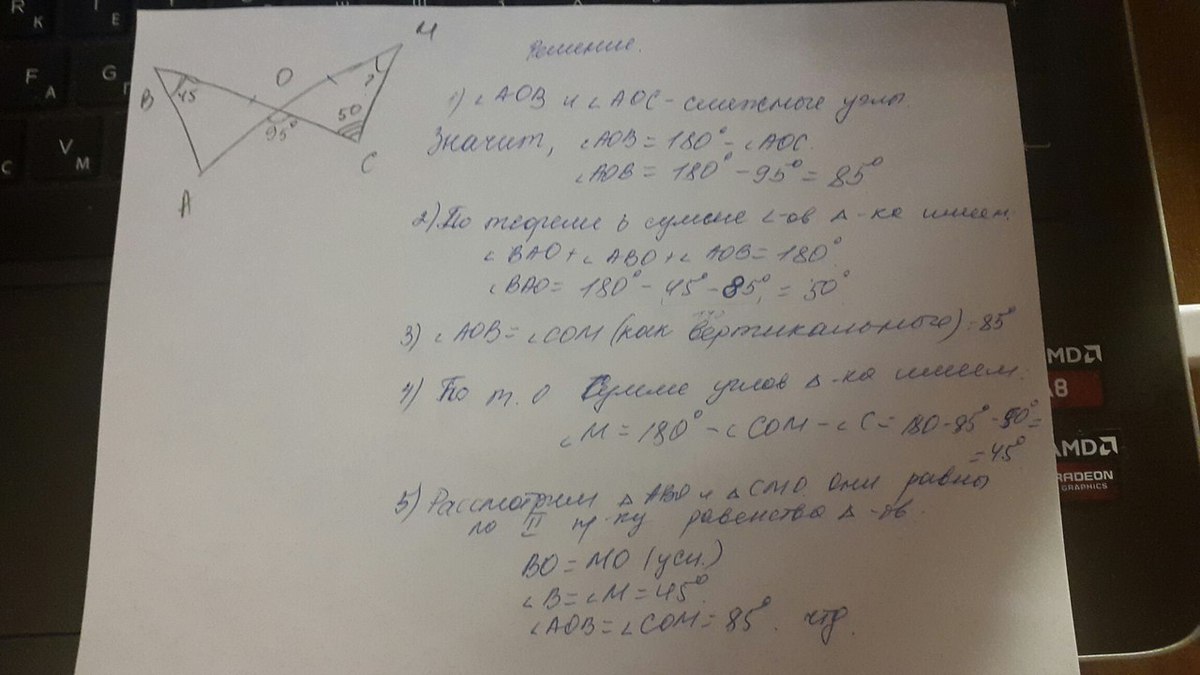 R К
І Е
F А
Г
С
V М
М
О
В
45
?
50
95°
С
А
Решение.
1) ∠AOB и ∠AOC - смежные углы
Значит, ∠AOB = 180° - ∠AOC.
∠AOB = 180° - 95° = 85°
2) По теореме о сумме ∠-ов Δ-ка имеем:
∠BAO + ∠ABO + ∠AOB = 180°
∠BAO = 180° - 45° - 85° = 50°
3) ∠AOB = ∠COM (как вертикального) = 85°
4) По т. о Сумме углов Δ-ка имеем:
∠M = 180° - ∠COM - ∠C = 180 - 85° - 50° =
= 45°
5) Рассмотрим Δ ABO и Δ CMO они равны
по II пр-ку равенства Δ-ов.
BO = MO (усл.)
∠B = ∠M = 45°
∠AOB = ∠COM = 85°. чтд.
AMD
A8
AMD
RADEON
GRAPHICS